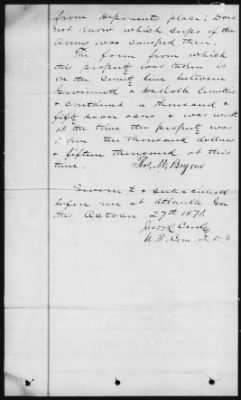 from deponents place; Does
not know which corps of the
army was camped there.
The farm from which
the property was taken is
on the County line between
Gwinnett & DeKalb Counties
& contained a thousand &
fifty seven acres & was worth
at the time the property was
taken ten thousand dollars
& fifteen thousand at this
time.
Thos. M. Bryan
Sworn to & subscribed
before me at Atlanta Geo
this October 27th 1871.
U.S. Com.